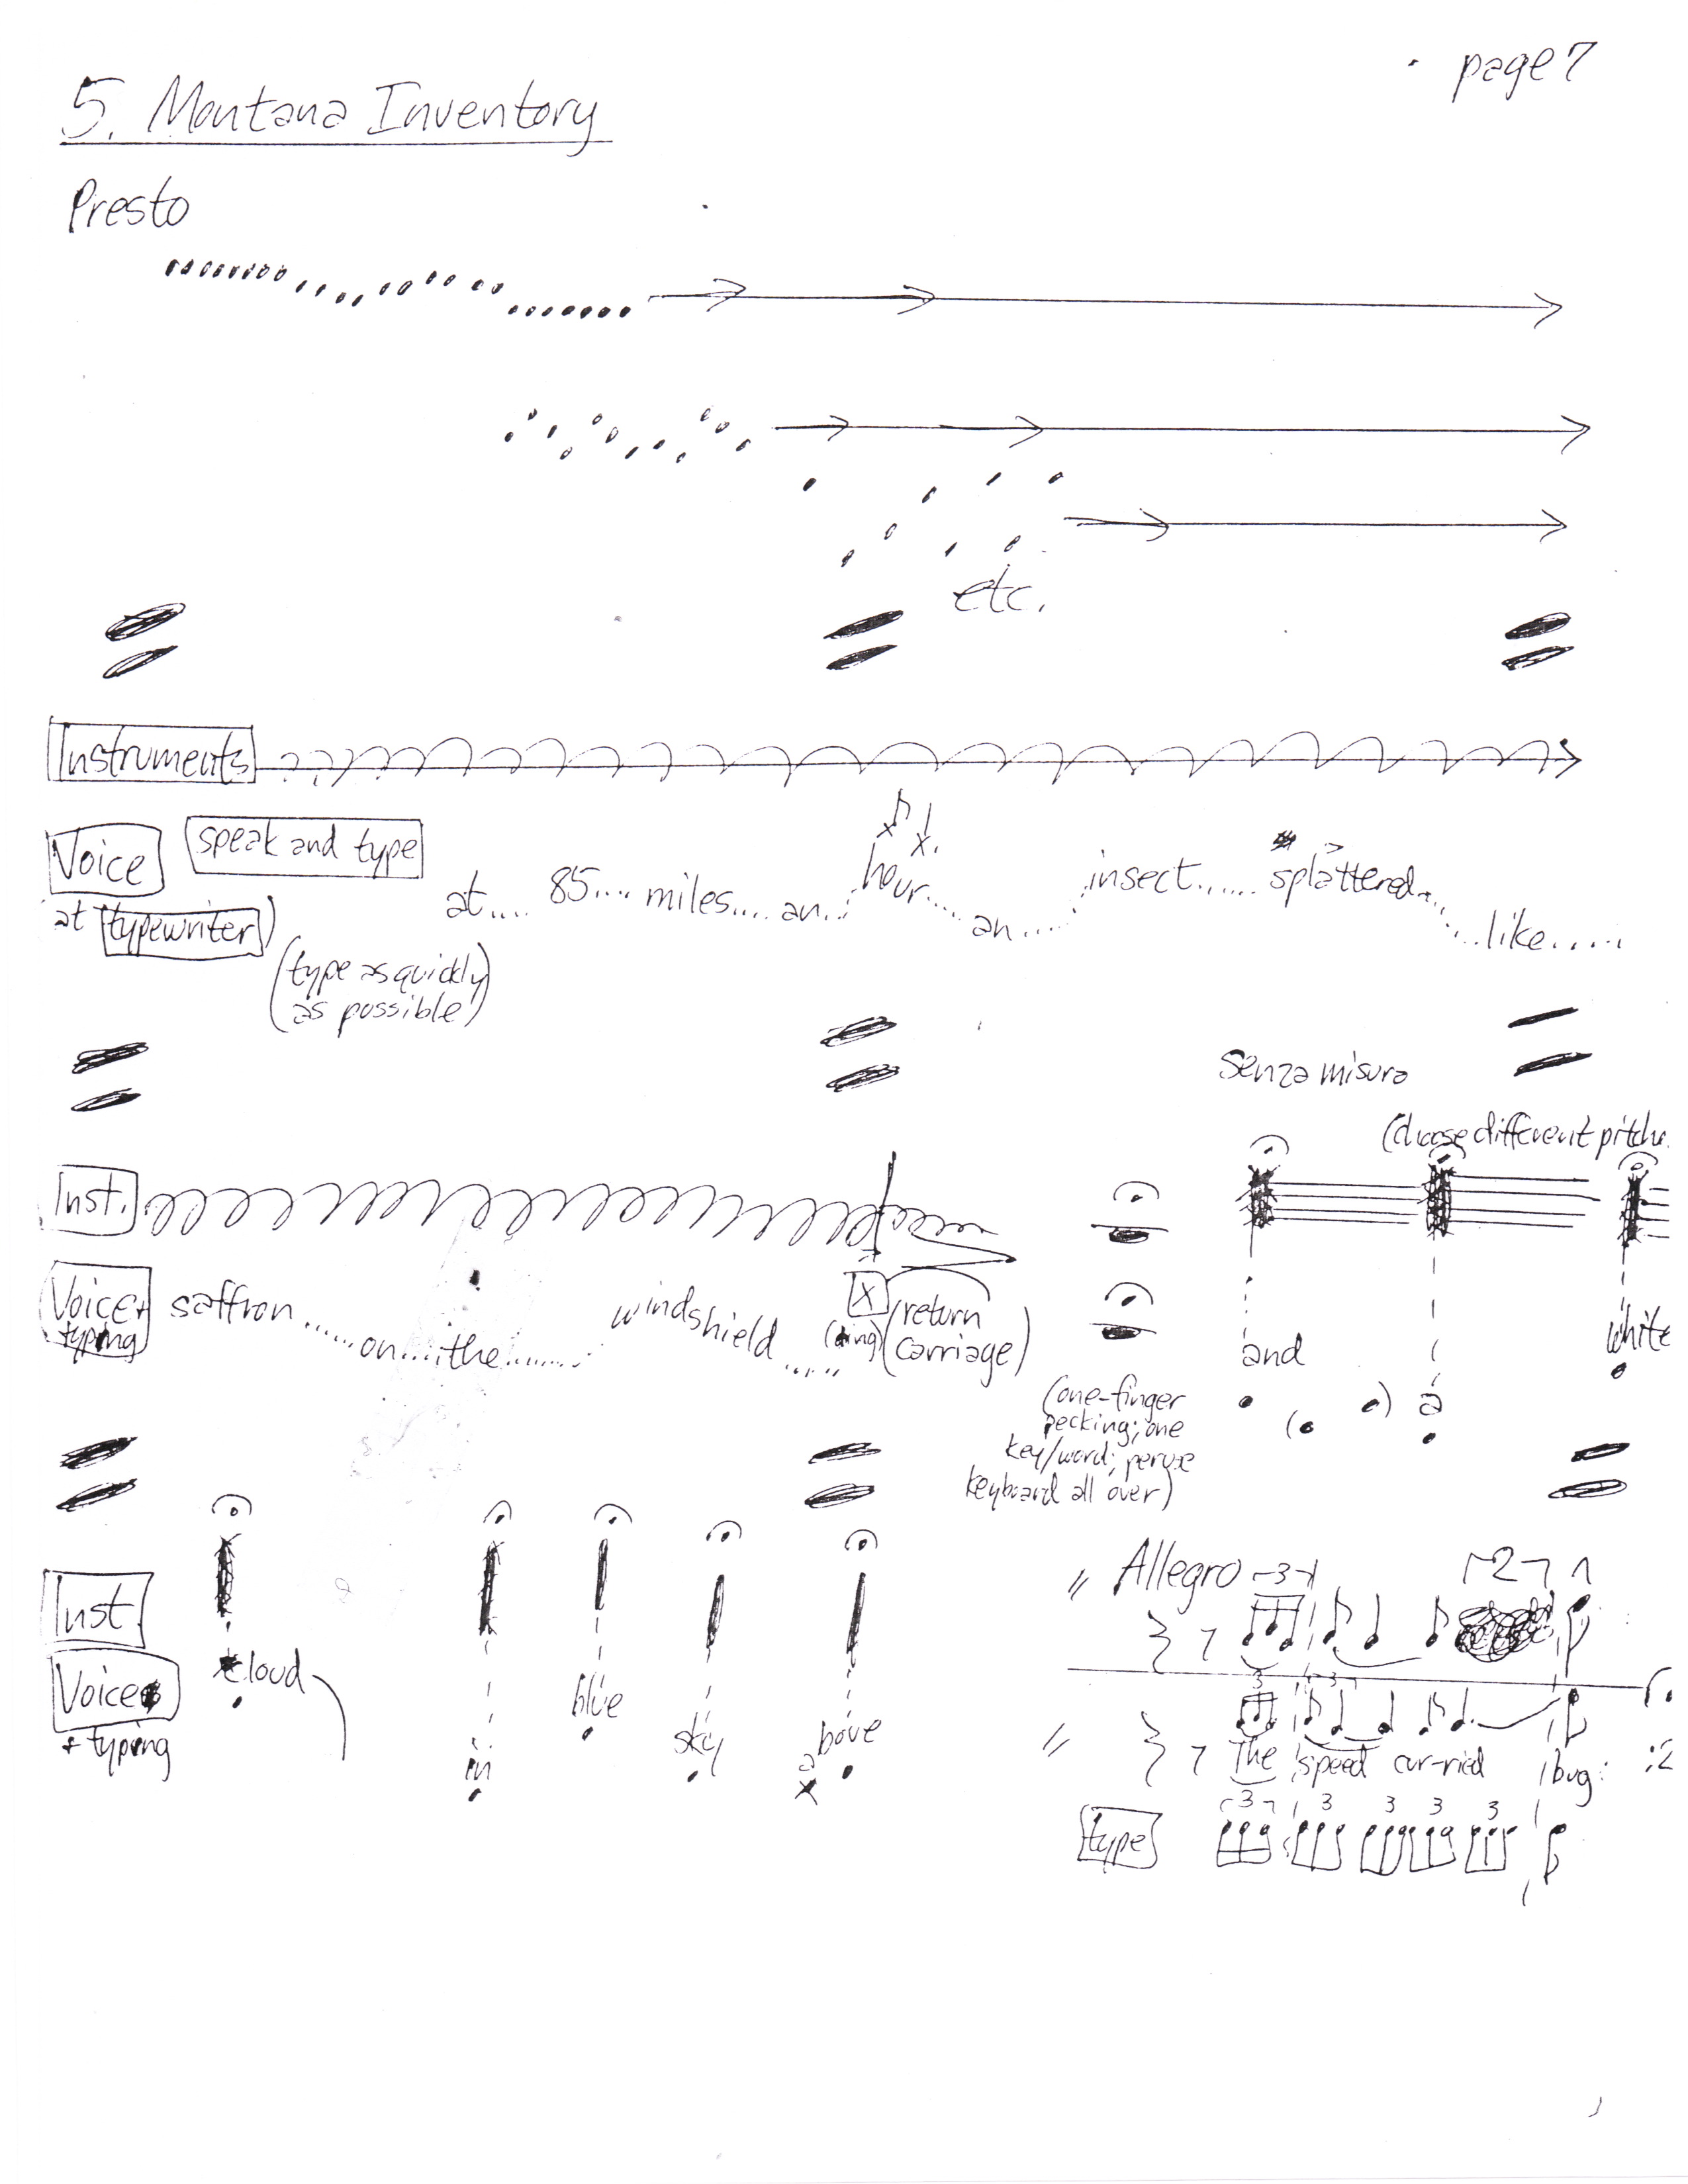 page 7
5. Montana Inventory
Presto
etc.
Instruments
Voice speak and type
at typewriter)
at..... 85.... miles.... an... hour.... an..... insect...... splattered.. ...like.....
(type as quickly
as possible)
senza misura
(choose different pitche
Inst.
Voice + typing saffron ...... on....the....... windshield ...... X (ding) (return carriage)
and a white
(one-finger
pecking; one
key/word;
keyboard all over)
Inst
Voice + typing
cloud in blue sky above
" Allegro 3 2
3 3
" The speed cur-ried bug: :2
3 3 3 3 3
type